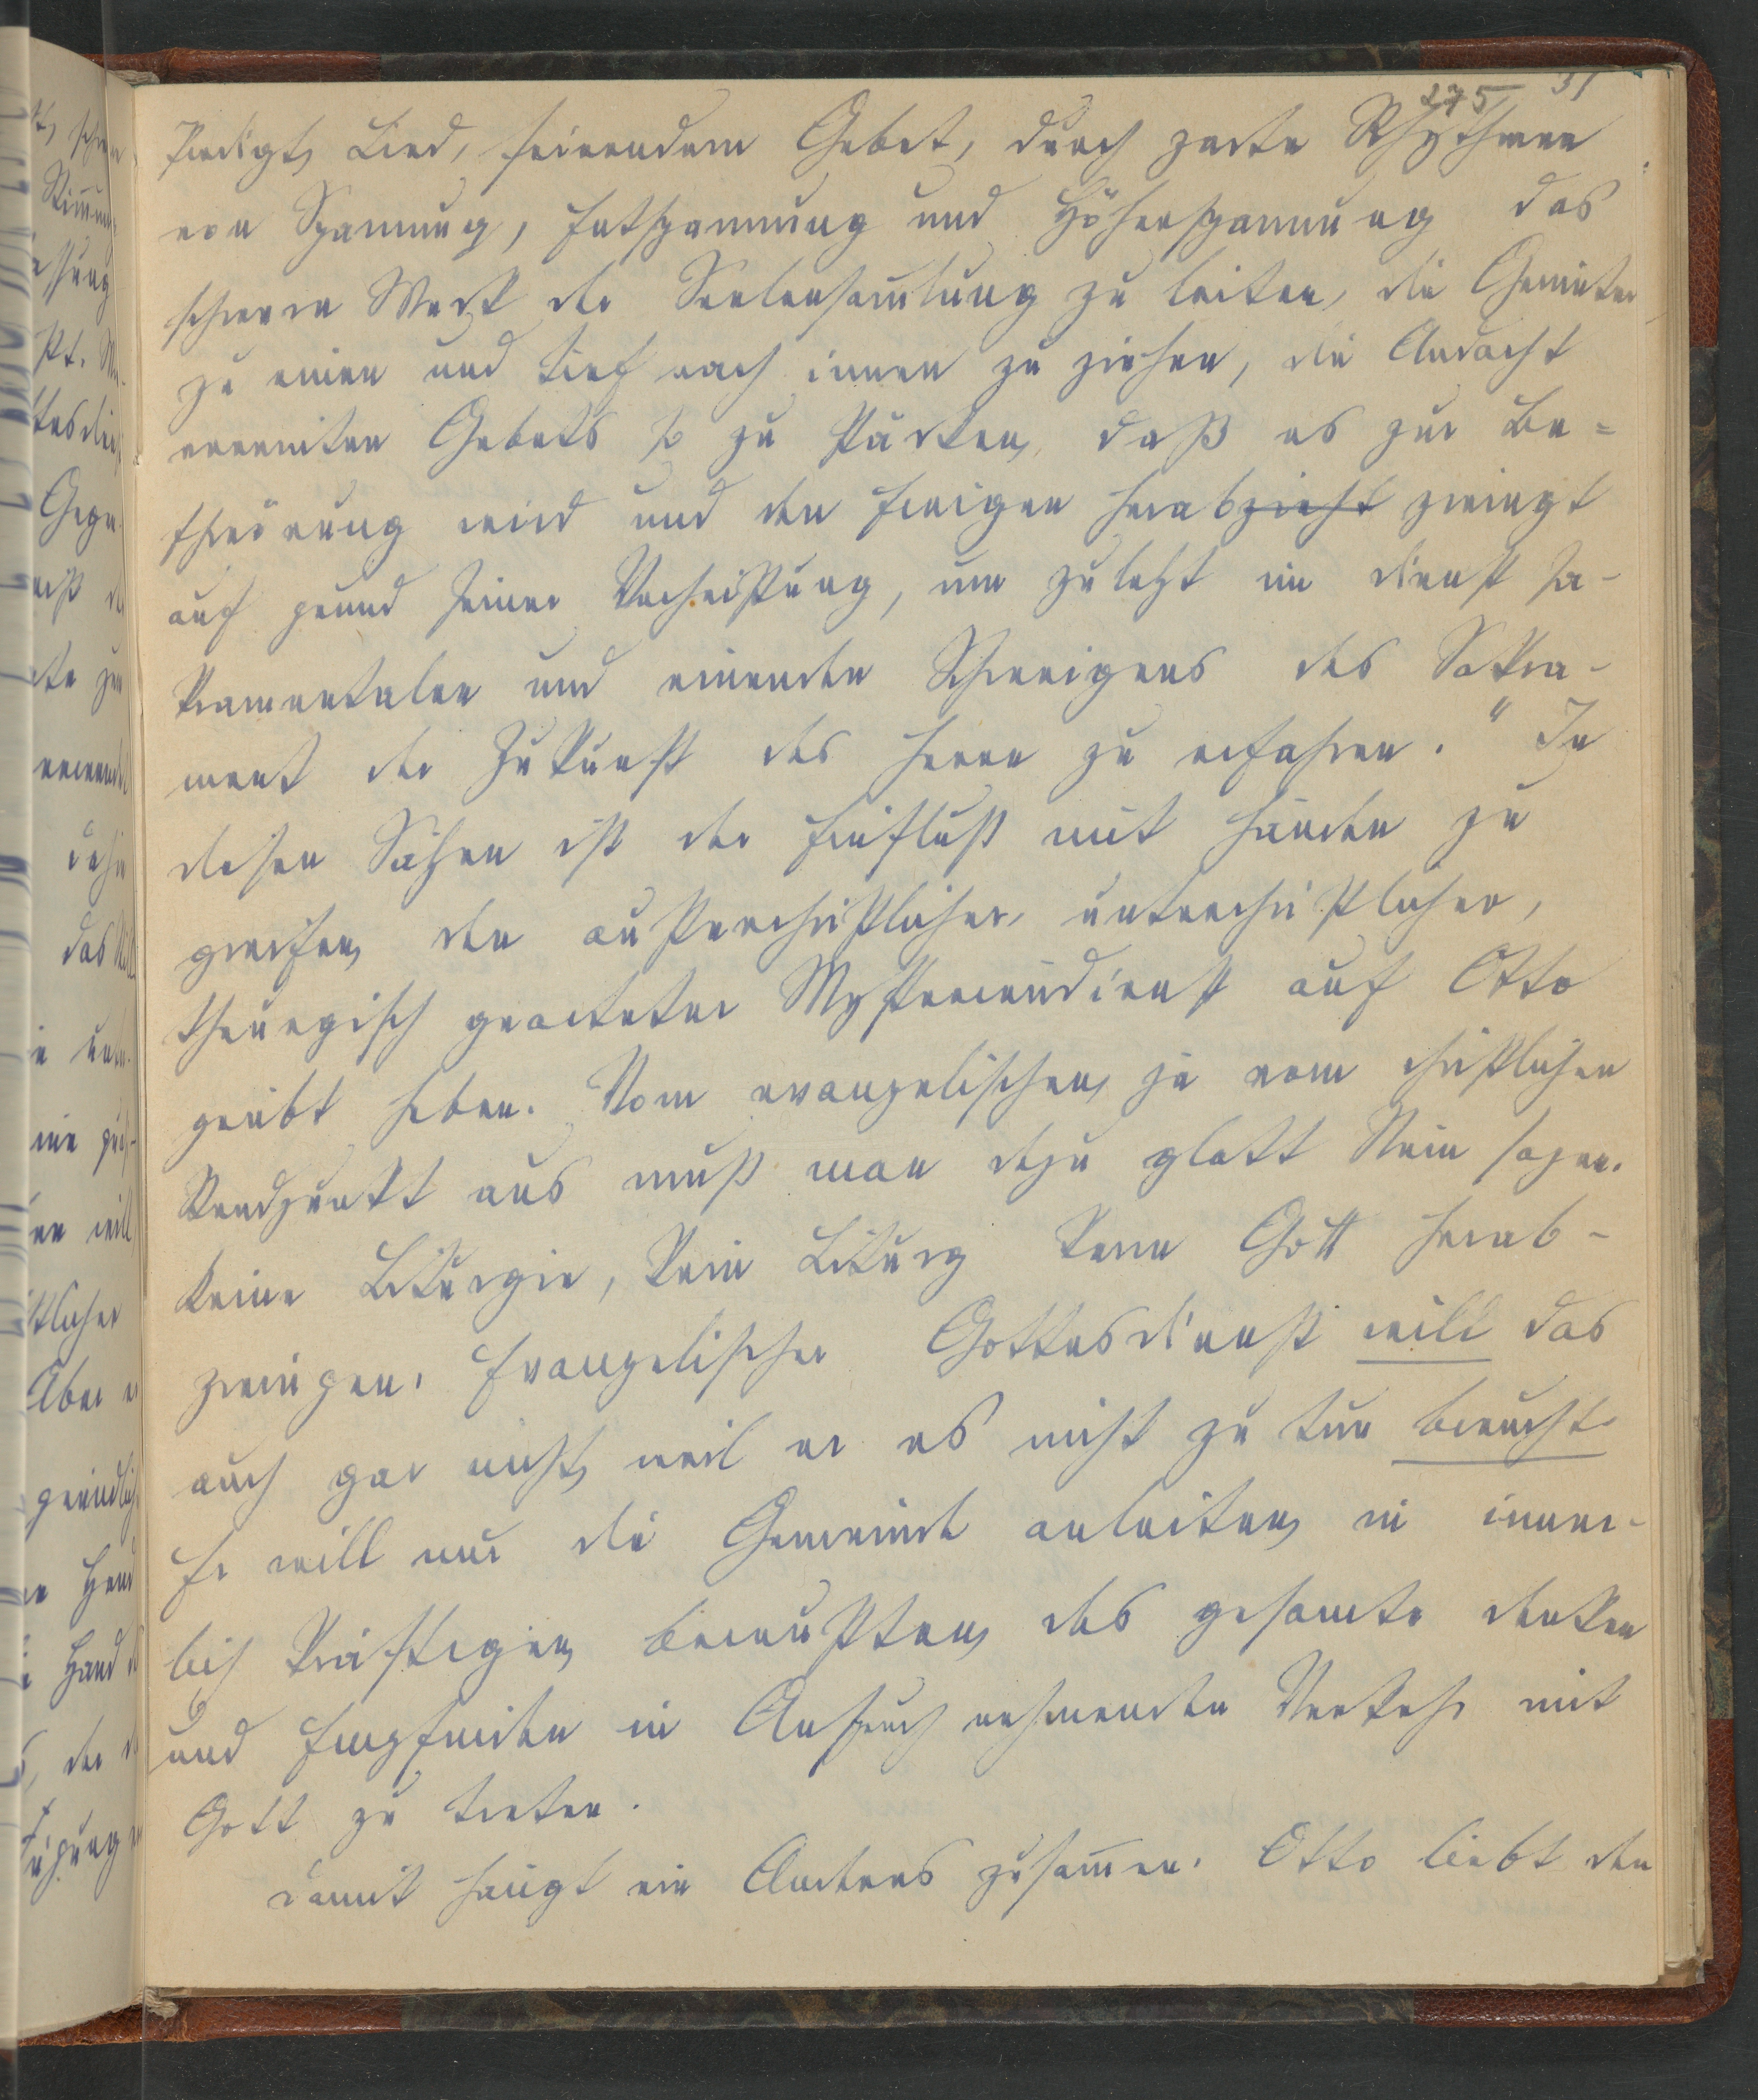 275 31
Predigt, Lied, feierndem Gebet, durch zarte Rhythmen
von Spannung, Entspannung und Höherspannung das
schwere Werk der Seelensam̄lung zu leiten, die Gemüter
zu einen und tief nach innen zu ziehen, die Andacht
vereinten Gebets so zu stärken, daß es zur Be=
schwörung wird und den Ewigen herabzieht zwingt
auf grund seiner Verheißung, um zuletzt im dienst sa-
kramentalen und einenden Schweigens das Sakra-
ment der Zukunft des Herrn zu erfahren." In
diesen Sätzen ist der Einfluß mit Händen zu
greifen, den außerchristlicher, unterchristlicher,
theurgisch gearteter Mysteriendienst auf Otto
geübt haben. Vom evangelischen, ja vom christlichen
Standpunkt aus muß man dazu glatt Nein sagen.
Keine Liturgie, kein Liturg kann Gott herab-
zwingen. Evangelischer Gottesdienst will das
auch gar nicht, weil er es nicht zu tun braucht.
Er will nur die Gemeinde anleiten, in inner-
lich kräftigen, bewußten, das gesamte denken
und Empfinden in Anspruch nehmenden Verkehr mit
Gott zu treten.
Damit hängt ein Anderes zusam̄en. Otto liebt den